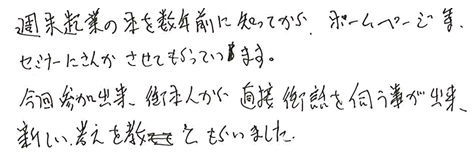 週末起業の本を数年前に知ってから、ホームページ等、
セミナーにさんかさせてもらっています。
今回参加出来、御本人から直接御話を伺う事が出来、
新しい考えを教えてもらいました。